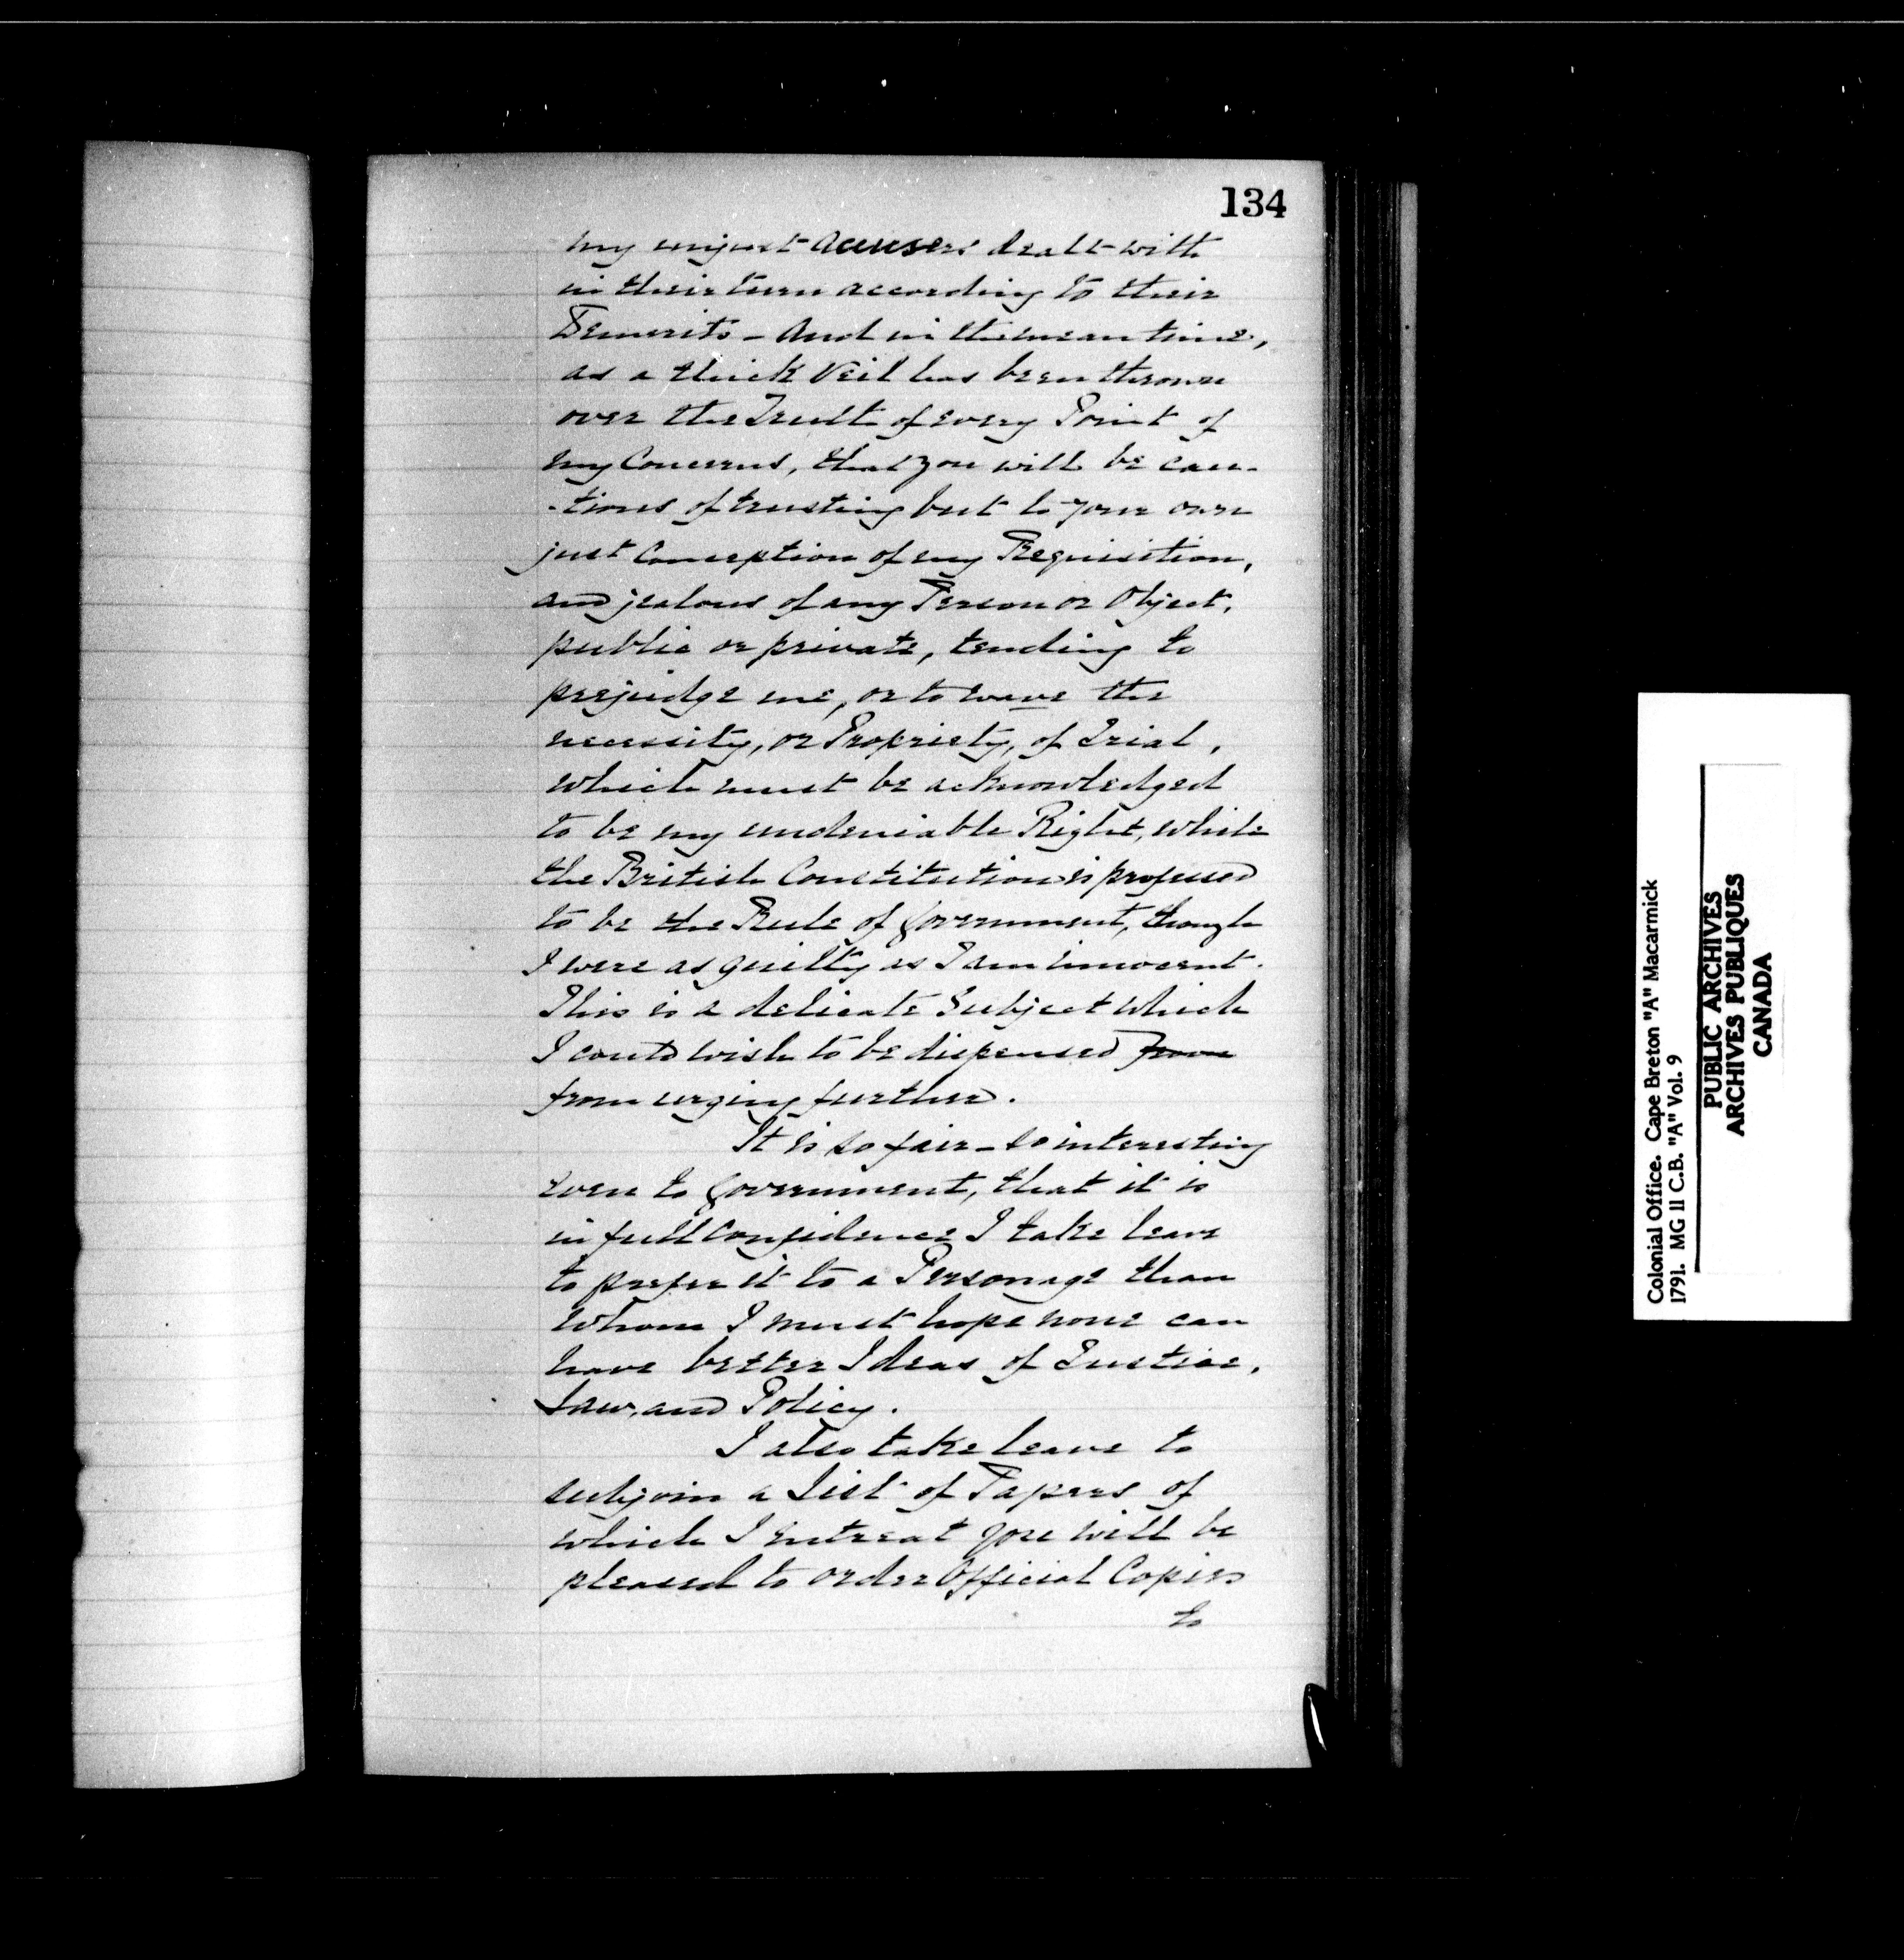 134
my unjust accusers dealt with
in their turn according to their
Demerits - And in the mean time,
as a thick Veil has been thrown
over the Truth of every Point of
my Concerns, that you will be cau-
-tious of trusting but to your own
just Conception of my Requisition,
and jealous of any Person or Object,
public or private, tending to
prejudge me, or to wave the
necessity, or Propriety, of Trial,
which must be acknowledged
to be my undeniable Right, while
the British Constitution is professed
to be the Rule of Government, though
I were as guilty as I am innocent.
This is a delicate Subject which
I could wish to be dispensed from
from urging further.
It is so fair - so interesting
even to Government, that it is
in full confidence I take leave
to prefer it to a Personage than
whom I must hope none can
have better Ideas of Justice,
Law, and Policy.
I also take leave to
subjoin a List of Papers of
which I intreat you will be
pleased to order Official Copies
to
Colonial Office. Cape Breton "A" Macarmick
1791. MG 11 C.B. "A" Vol. 9
PUBLIC ARCHIVES
ARCHIVES PUBLIQUES
CANADA